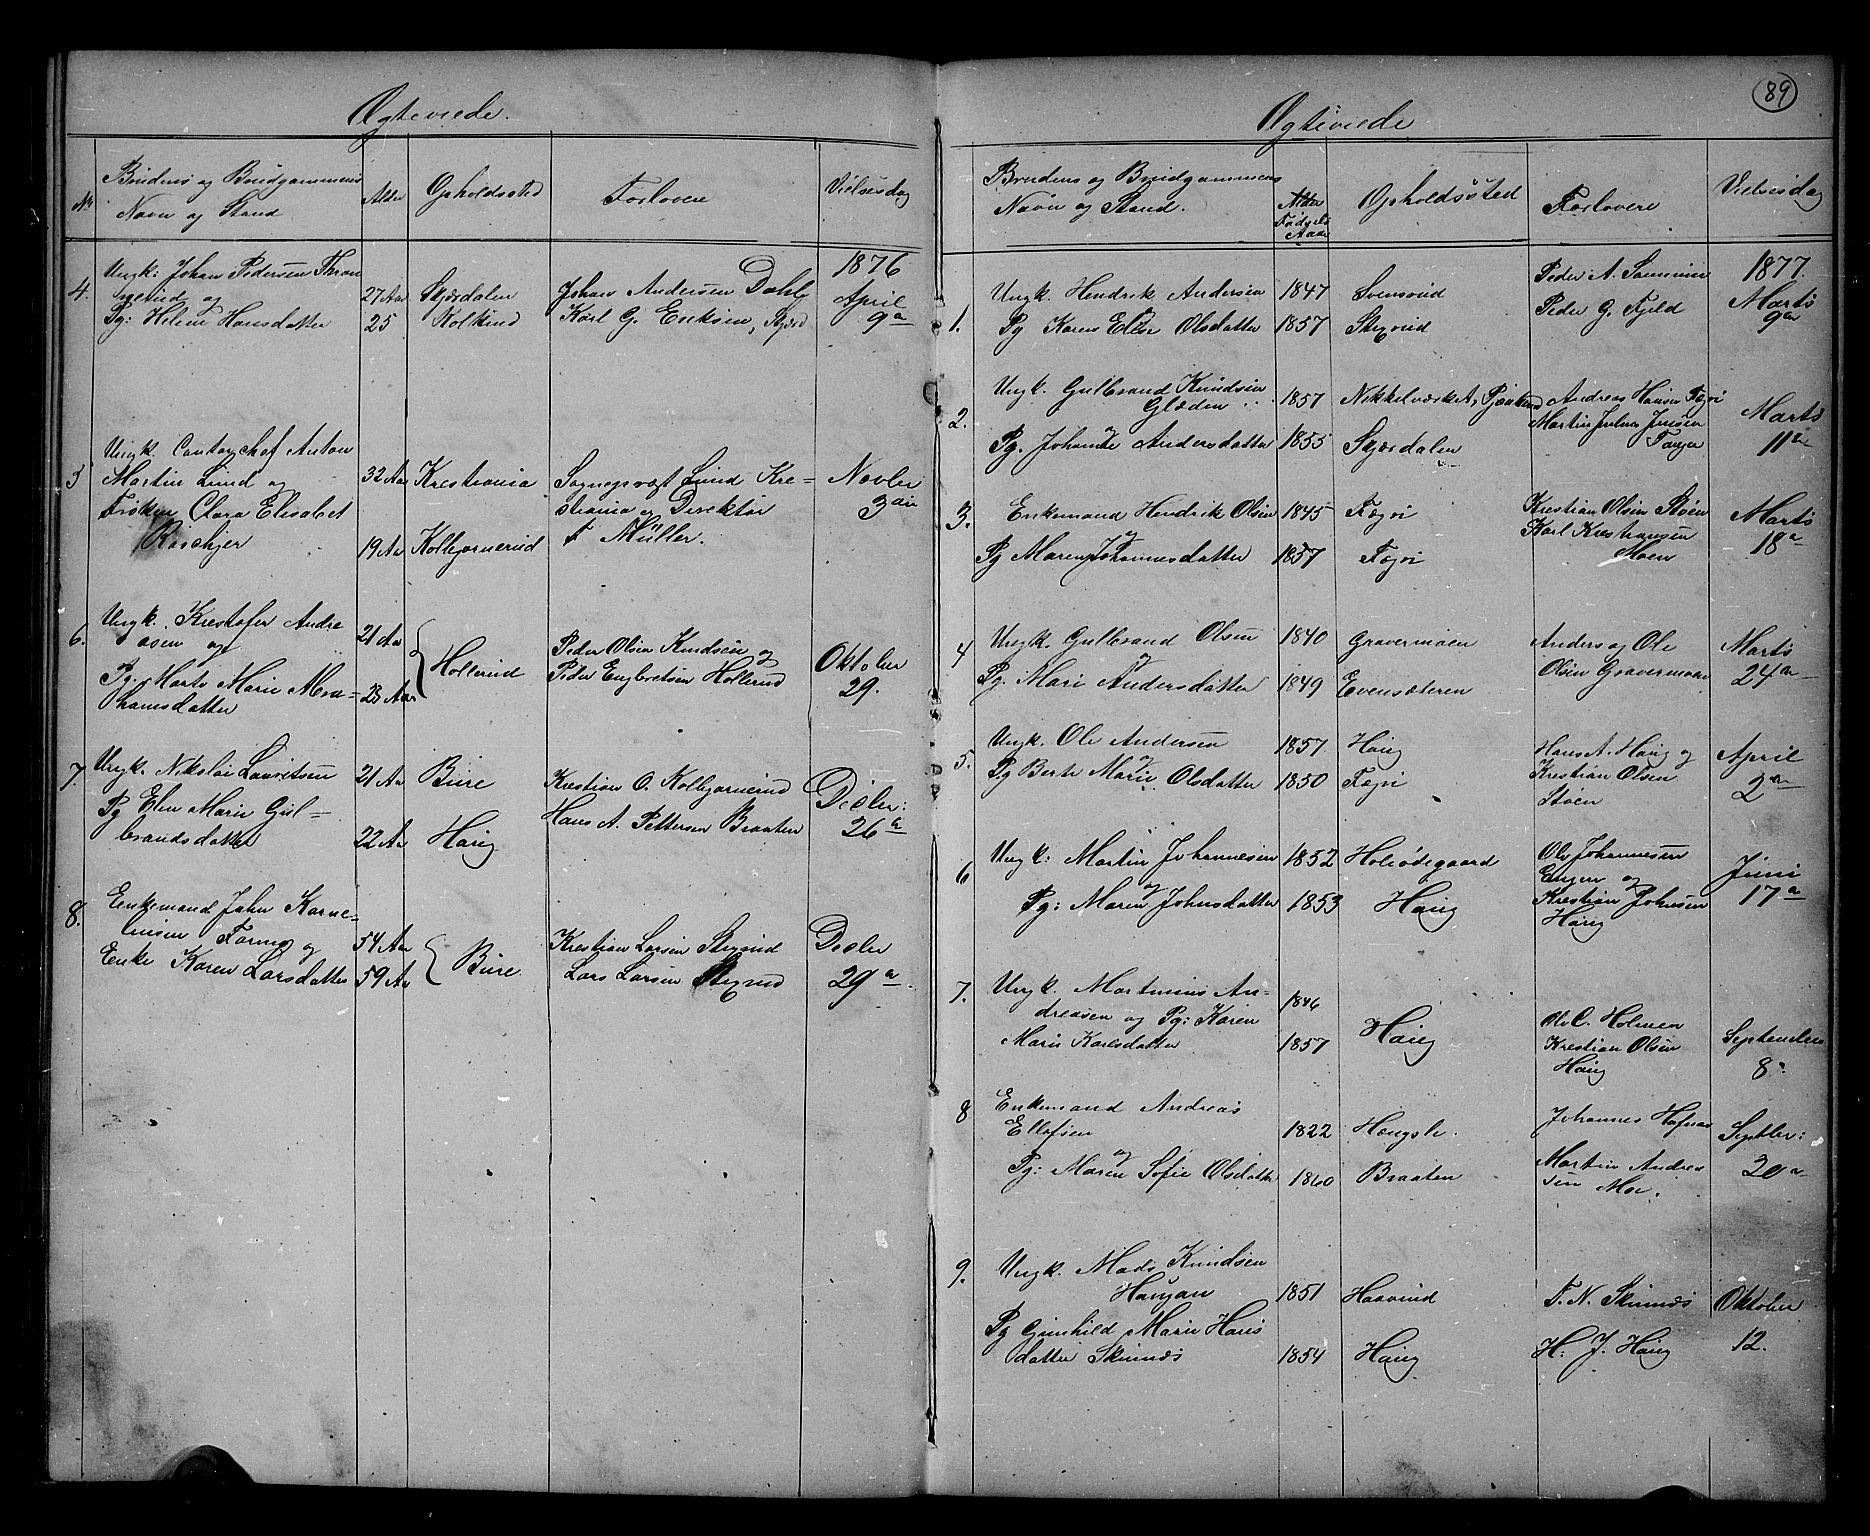 Ægteviede.
No
Brudens og Brudgommens
Navn og Stand
Alder
Opholdssted
Forlovere
Vielsesdag
4.
Ungk: Johan Pedersen Thron
nerud og
Pg: Helene Hansdatter
27 Aar
25
Skjærdalen
Kolkind
Johan Andersen Dahl
Karl G. Eriksen, Skjærd
1876
April
9de
5
Ungk. Contorchef Anton
Martin Lund og
Frøken Clara Elisabet
Roschjer
32 Aar
19 Aar
Krestiania
Kollegjornerud
Sognepræst Lund Kre=
stiania og Direktør
F Müller.
Novber
3die
6.
Ungk. Krestofer Andre
asen og
Pg. Marte Marie Mra=
thansdatter
21 Aar
23 Aar
Hollerud
Peder Olsen Knudsen og
Peder Engbretsen Hollerud
Oktober
29.
7.
Ungk. Nikolai Lauritsen
Pg Elen Marie Gul=
brandsdatter
21 Aar
22 Aar
Bure
Haug
Krestian O. Kollegjornerud
Hans A. Pettersen Braaten
Decbr:
26de
8.
Enkemand John Korne=
liusen Formo og
Enke Karen Larsdatter
54 Aar
59 Aar
Bure
Krestian Larsen Stixrud
Lars Larsen Stixrud
Decbr
29de
89
Ægteviede
Brudens og Brudgommens
Navn og Stand.
Alder
Fødsels
Aar
Opholdssted
Forlovere
Vielsesdag
1.
Ungk. Hendrik Andersen
og
Pg Karen Elise Olsdatter
1847
1857
Svensrud
Stixrud
Peder A.
Peder G. Fjeld
1877.
Marts
9de
2.
Ungk. Gulbrand Knudsen
Glæden
og
Pg. Johanne Andersdatter
1857
1855
Nikkelværket,
Skjærdalen
Andreas Hansen Fægri
Martin Julius Jensen
Tanger
Marts
11te
3.
Enkemand Hendrik Olsen
og
Pg Maren Johannesdatter
1845
1857
Fægri
Fægri
Krestian Olsen Støen
Karl Krestiansen
Moen
Marts
18de
4
Ungk. Gulbrand Olsen
og
Pg. Mari Andersdatter
1840
1849
Gravermoen
Evensæteren
Anders og Ole
Olsen Gravermoen
Marts
24de
5.
Ungk. Ole Andersen
og
Pg Berte Marie Olsdatter
1857
1850
Haug
Fægri
Hans A. Haug og
Krestian Olsen
Støen
April
2de
6
Ungk: Martin Johannesen
og
Pg: Maren Johnsdatter
1852
1853
Holeødegaard
Haug
Ole Johannesen
Engen og
Krestian Johnsen
Haug
Juni
17de
7.
Ungk. Martinius An=
dreasen og Pg: Karen
Marie Karlsdatter
1846
1857
Haug
Ole C. Holmen
Krestian Olsen
Haug
September
8de
8
Enkemand Andreas
Ellefsen
og
Pg: Maren Sofie Olsdatter
1822
1860
Hængsle.
Braaten
Johannes Hafnas
Martin Andrea
sen Moe.
Septbr:
20de
9.
Ungk. Mads Knudsen
Haugan
Pg Gunhild Marie Hans
datter Skinnes
1851
1854
Haavrud
Haug
T. N. Skinnes
H. J. Haug
Oktober
12.